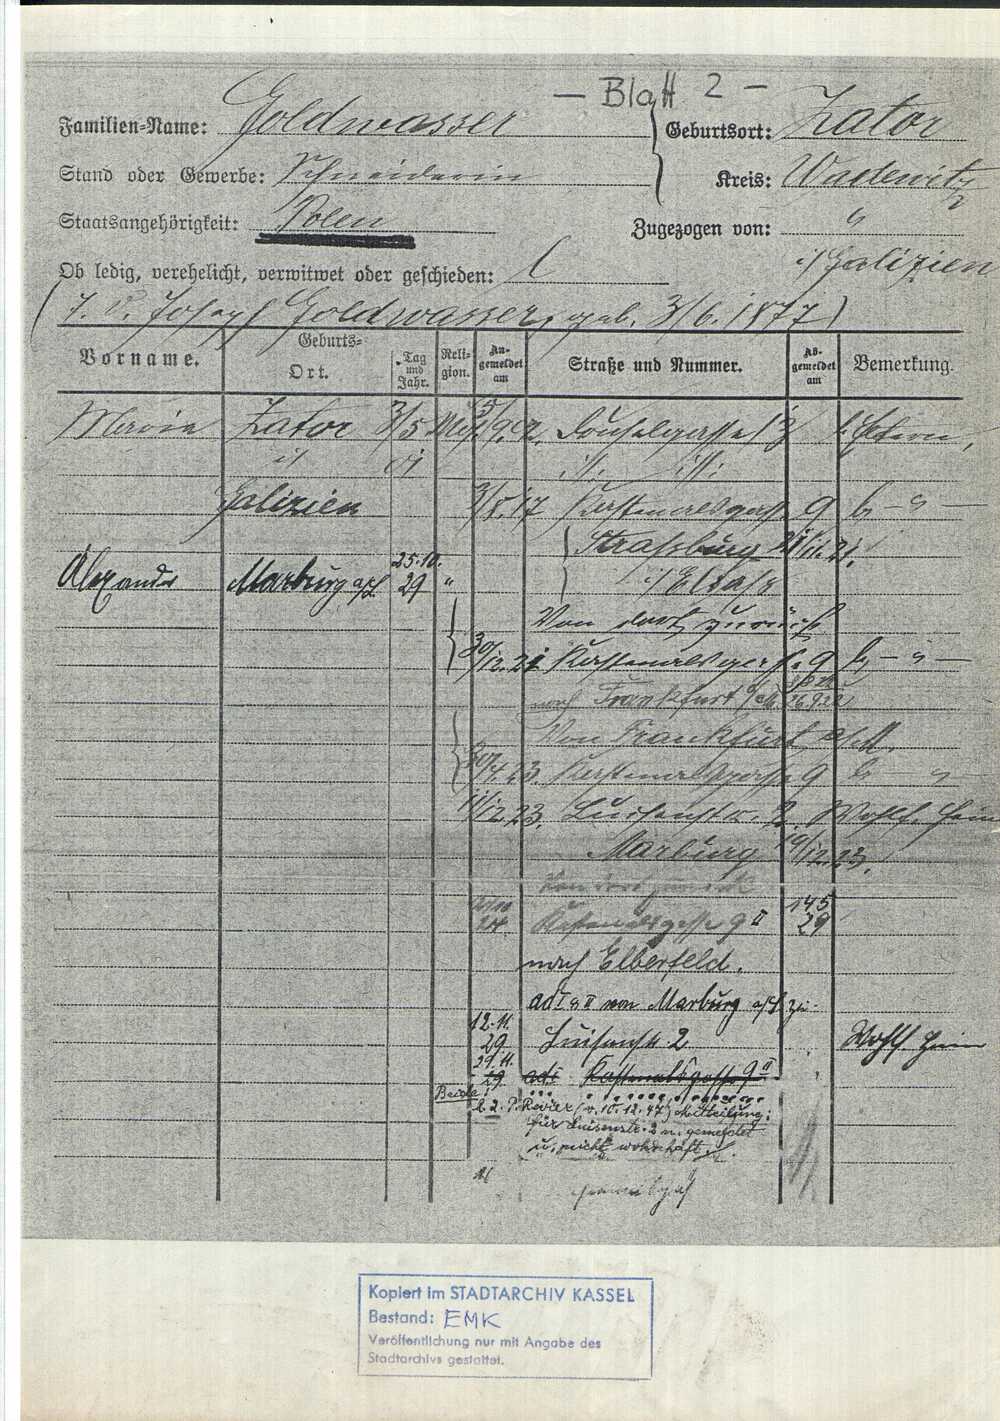 — Blatt 2 —
Familien-Name: Goldwasser Geburtsort: Zator
Stand oder Gewerbe: Schneiderin Kreis: Wadowitz
Staatsangehörigkeit: Polen Zugezogen von: "
Ob ledig, verehelicht, verwitwet oder geschieden: l i/Galizien
Josef Goldwasser, geb. 3/6. 1877)
Vorname. Geburts- Ort. Tag und Jahr. Reli-gion. An-gemeldet am Straße und Nummer. Ab-gemeldet am Bemerkung.
Zator 3/5 b. Eltern,
i/
Galizien 17 Kastenalsgasse 9 b — " —
Straßburg
i/Elsaß
Alexander Marburg a/L 25.10. 29 "
Von dort zurück
30/12. 21 Kastenalsgasse 9 b — " —
nach Frankfurt a/M. 26.9.22
Von Frankfurt a/M.
30/4.23. Kastenalsgasse 9 b "
11/12.23. Luisenstr. 2. Wohlf. Heim
Marburg 19/12.23.
Von dort zurück
24 Kastenalsgasse 9 II 14.5 29
nach Elberfeld.
ad I & II von Marburg a/L zu-
12.11. 29 Luisenstr. 2 Wohlf. Heim
29.11. 29 ad I Kastenalsgasse 9 II
Beide: l. 2. P. Revier (v. 10.12.47) Mitteilung:
für Luisenstr. 2 n. gemeldet
u. nicht wohnhaft.
Kopiert im STADTARCHIV KASSEL
Bestand: EMK
Veröffentlichung nur mit Angabe des
Stadtarchivs gestattet.